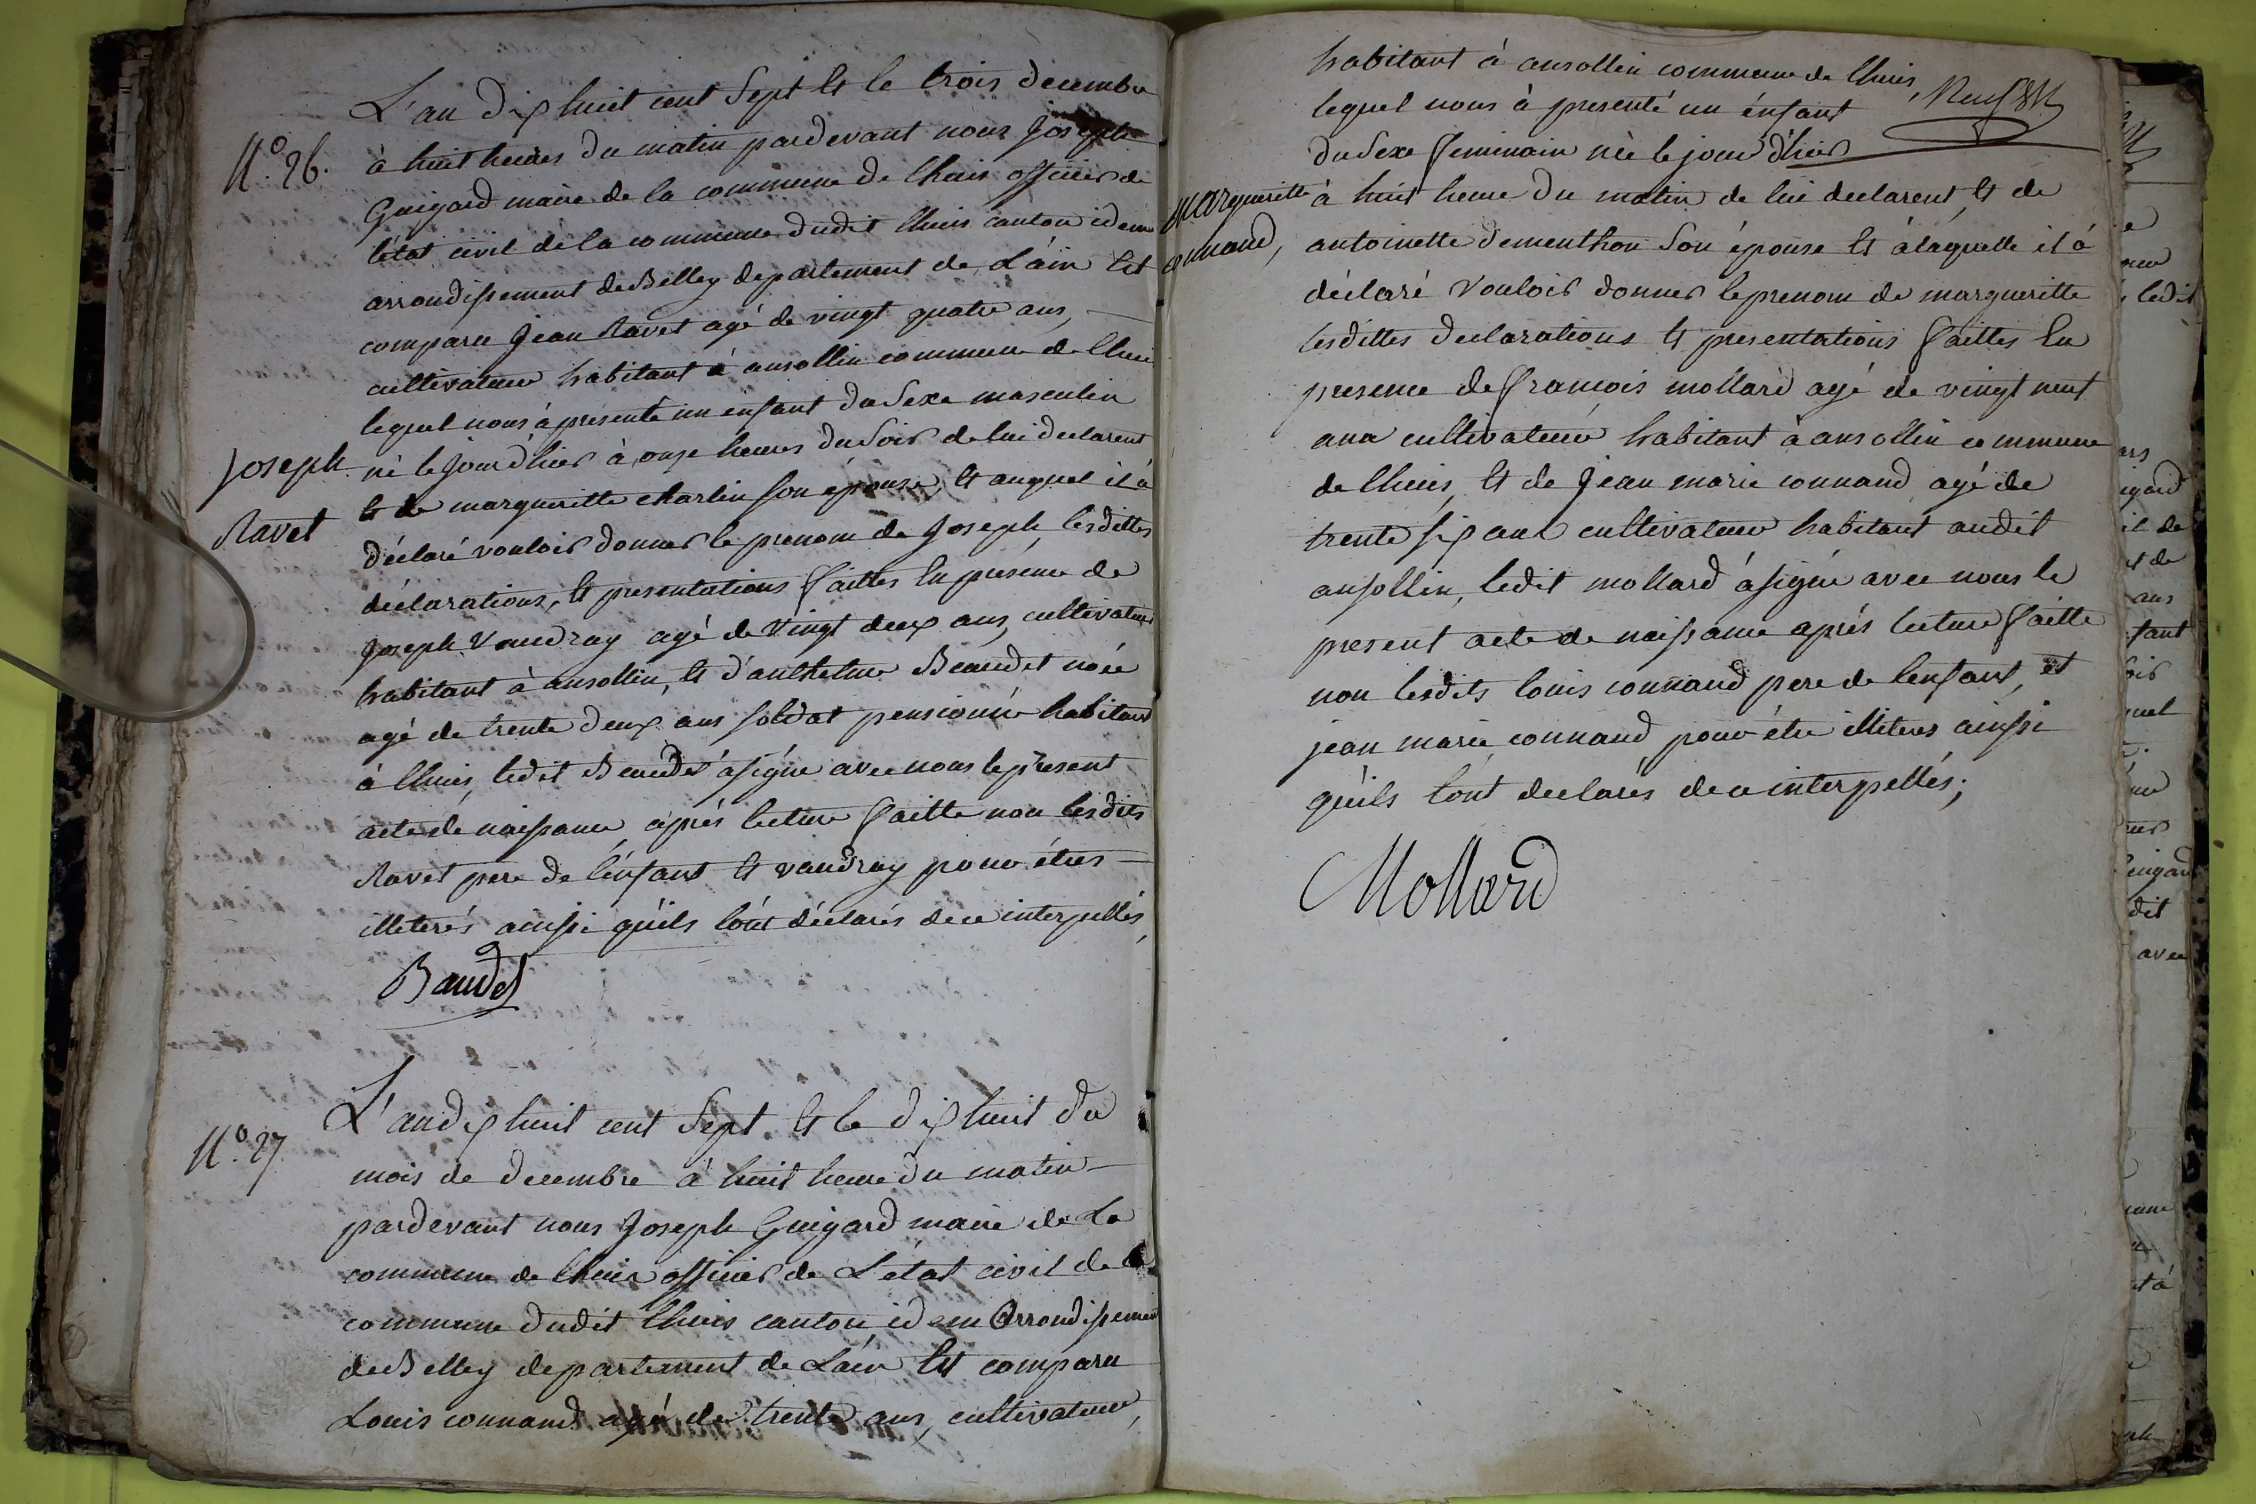 L'an dix huit cent Sept et le trois decembre
N.° 26.
à huit heures du matin pardevant nous Joseph
Guigard maire de la commune de lhuis officier de
létat civil de la commune dudit lhuis canton idem
arrondissement de Belley departement de L'ain Est
comparu Jean Ravet agé de vingt quatre ans,
cultivateur habitant à ansollin commune de lhuis
lequel nous à présenté un enfant du Sexe masculin
Joseph
Ravet
né le jour d'hier à onze heures du Soir de lui declarent
et de margueritte charlin son épouse, et auquel il à
déclaré vouloir donner le prenom de Joseph, lesdittes
déclarations, et presentations faittes En présence de
Joseph Vaudray agé de vingt deux ans, cultivateur
habitant à ansollin, et d'anthelme Beaudet
agé de trente deux ans soldat pensionné habitant
à lhuis, ledit Beaudet à signé avec nous le présent
acte de naissance, après lecture faitte non lesdits
Ravet pere de l'énfant et vaudray pour étres
illeterés ainsi qu'ils lont déclarés de ce interpellés,
Baudet
L'an dix huit cent Sept et le dix huit du
N.° 27
mois de decembre à huit heure du matin
pardevant nous Joseph Guigard maire de La
commune de lhuis officier de L'état civil de la
commune dudit lhuis canton idem Arrondissement
de Belley departement de Lain Est comparu
Louis connand agé de trente ans, cultivateur,
habitant à ansollin commune de lhuis,
lequel nous à presenté un énfant
du Sexe feminain née le jour d'hier
margueritte
connand,
à huit heure du matin de lui declarent, et de
antoinette dementhon Son épouse et à laquelle il à
déclaré vouloir donner le prenom de margueritte
lesdittes declarations et presentations faittes En
presence de françois mollard agé de vingt neuf
ans cultivateur habitant à ansollin commune
de lhuis, et de Jean marie connand agé de
trente six ans cultivateur habitant audit
ansollin, ledit mollard à signé avec nous le
present acte de naissance aprés lecture faitte
non lesdits louis connand pere de lenfant, et
jean marie connand pour étre illiteres ainsi
qu'ils lont declarés de ce interpellés;
Mollard